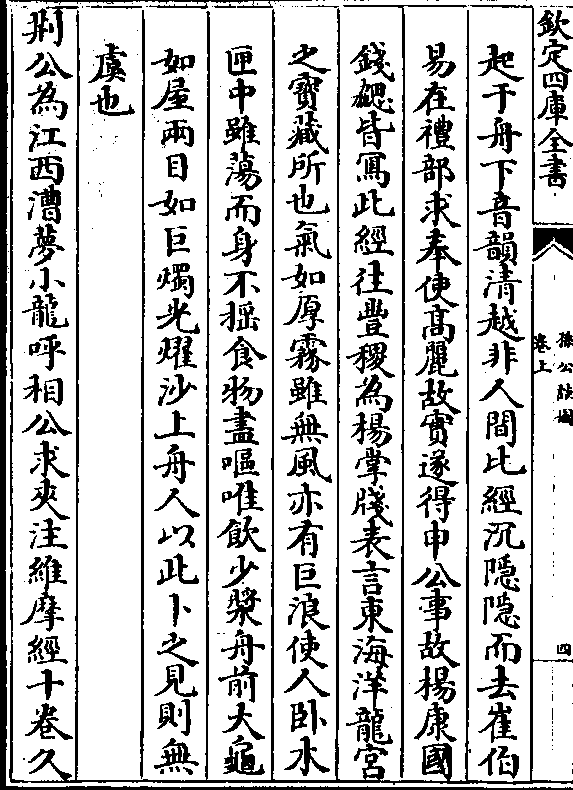 欽定四庫全書
孫公談圃
卷上
四
起于舟下音韻清越非人間比經沉隠隠而去崔伯
易在禮部求奉使髙麗故實遂得申公事故楊康國
錢勰皆寫此經往豐稷為楊掌牋表言東海洋龍宮
之寳藏所也氣如厚霧雖無風亦有巨浪使人卧木
匣中雖蕩而身不揺食物盡嘔唯飲少漿舟前大龜
如屋兩目如巨燭光耀沙上舟人以此卜之見則無
虞也
荆公為江西漕夢小龍呼相公求夾注維摩經十卷久